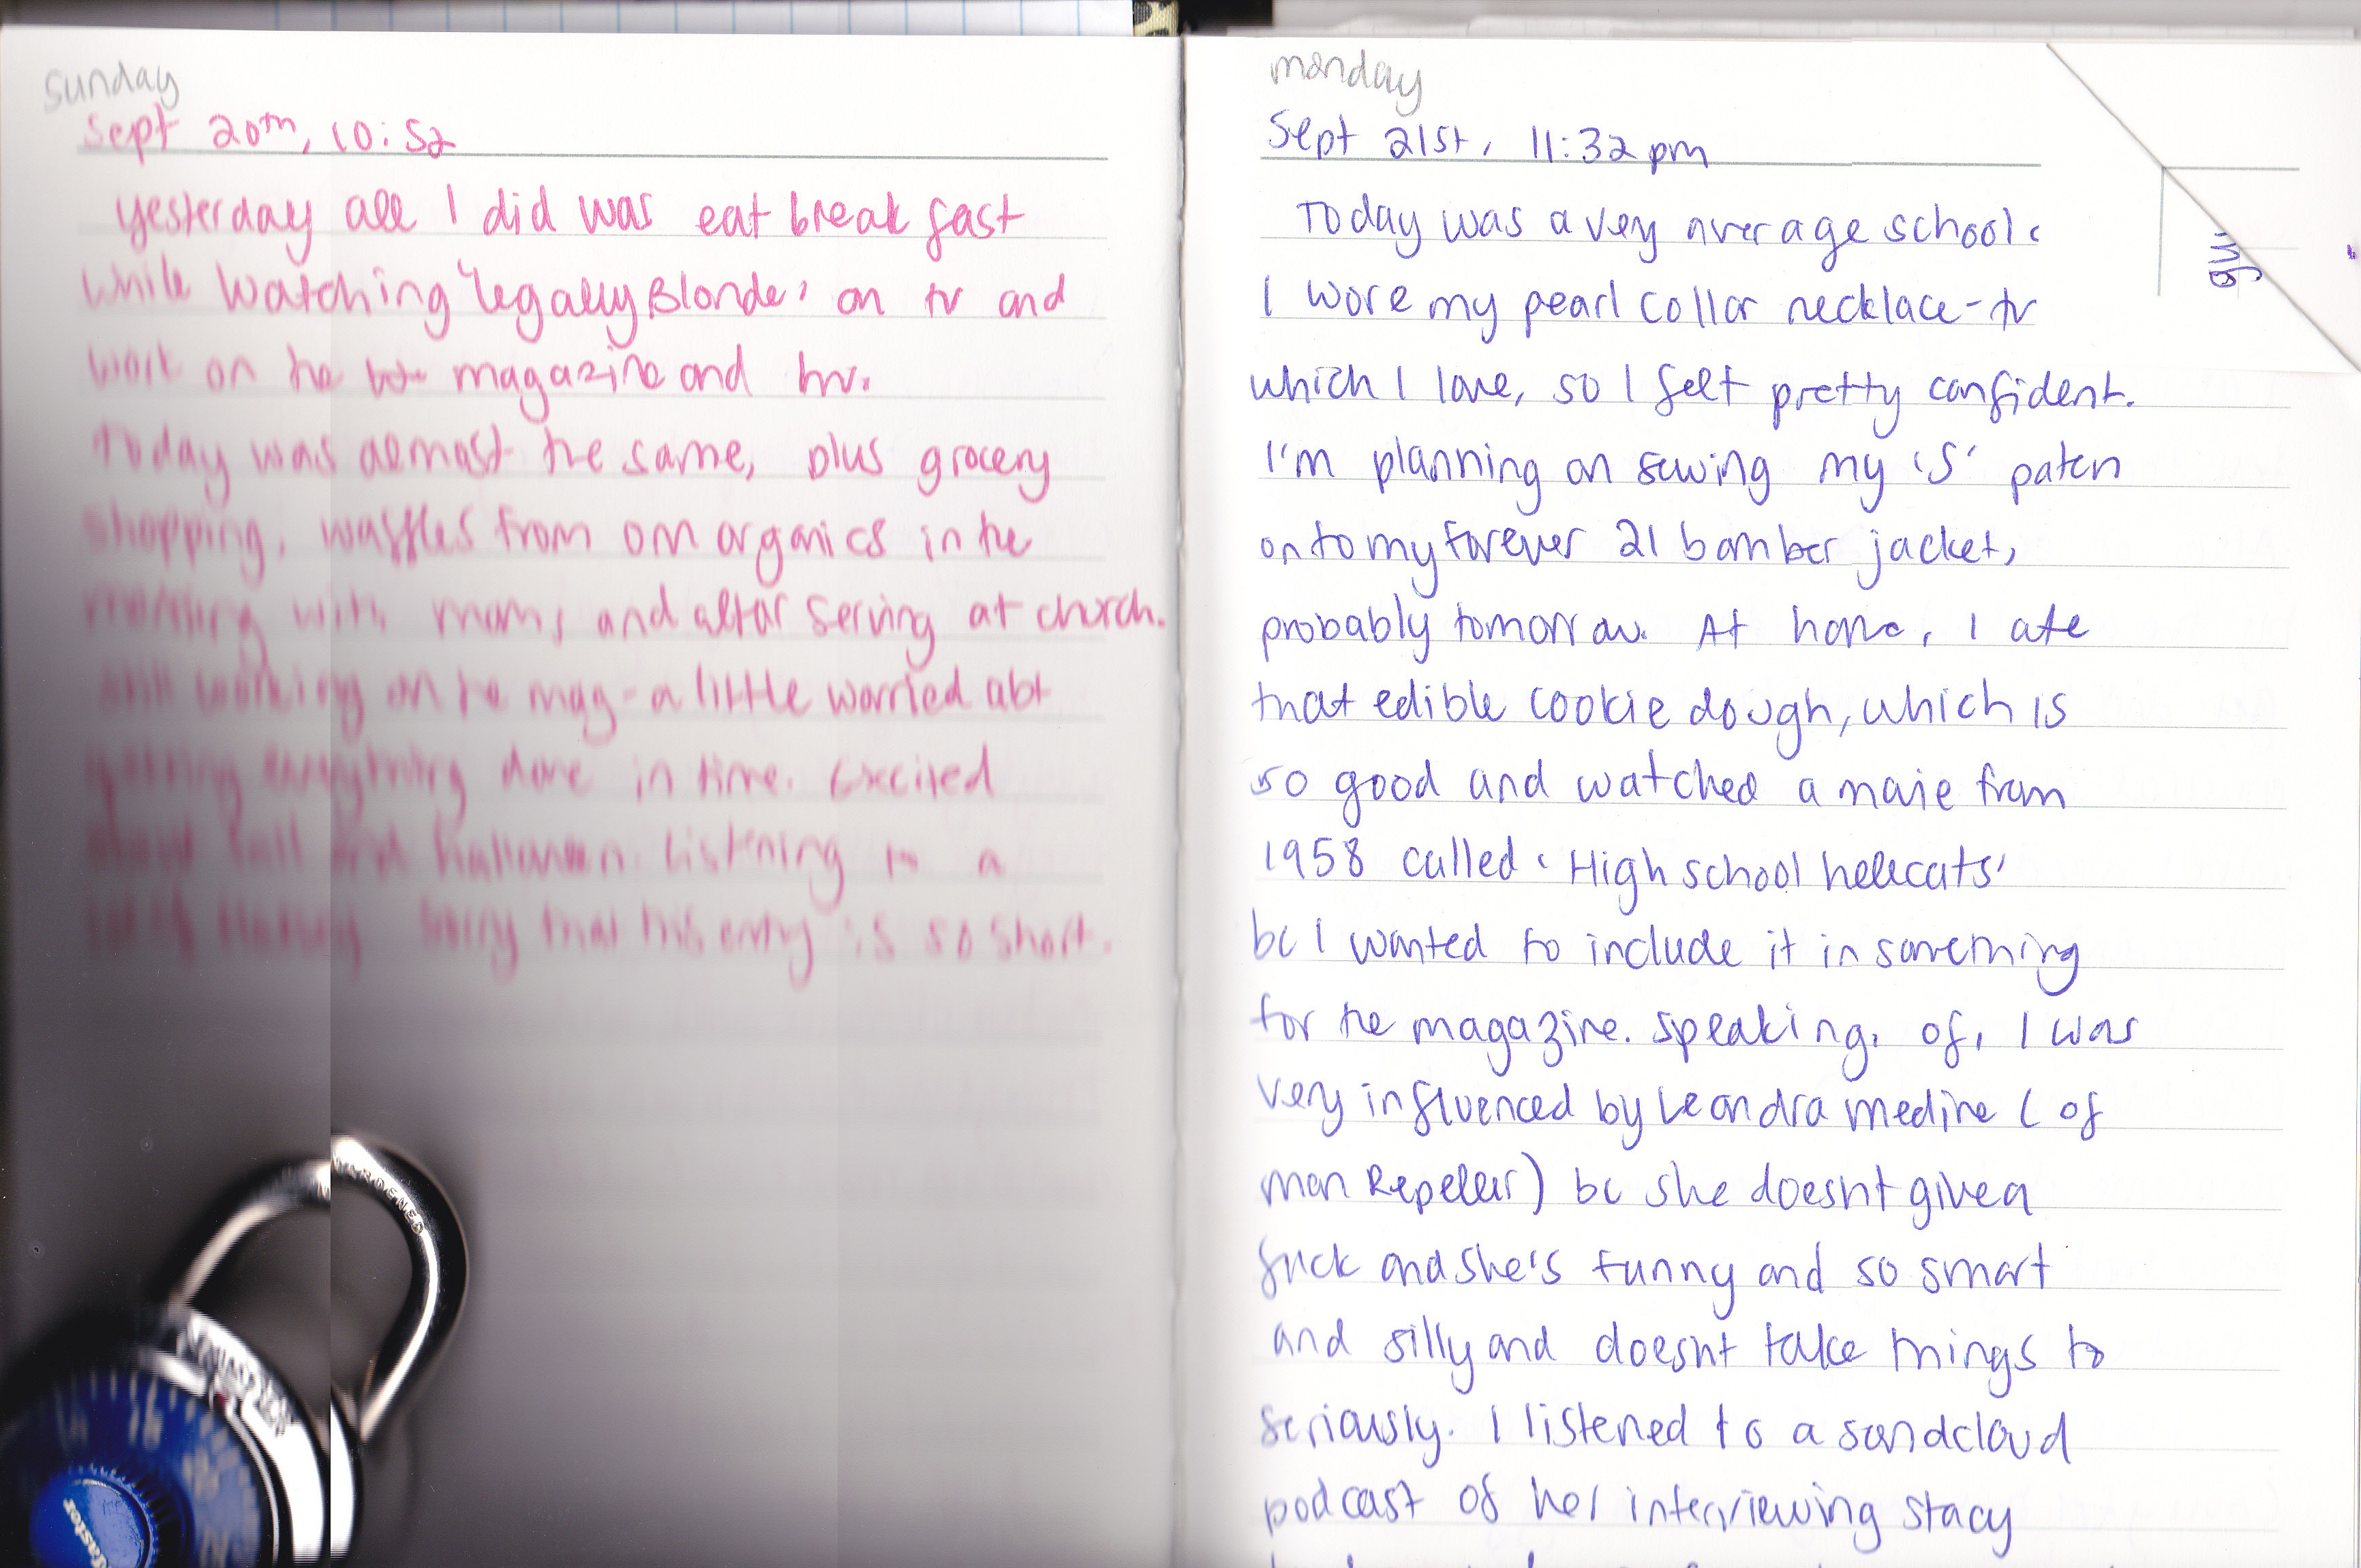 sunday
Sept 20th, 10:52
yesterday all I did was eat breakfast
while watching "legally Blonde" on tv and
work on the magazine and hw.
Today was almost the same, plus grocery
shopping, waffles from om organics in the
morning with mom, and altar serving at church.
still working on the mag - a little worried abt
getting everything done in time. Excited
about fall and halloween. Listening to a
lot of Sorry that this entry is so short.
HARDENED
Master
monday
Sept 21st, 11:32 pm
Today was a very average school
I wore my pearl collar necklace-
which I love, so I felt pretty confident.
I'm planning on sewing my 'S' patch
onto my forever 21 bomber jacket,
probably tomorrow. At home, I ate
that edible cookie dough, which is
so good and watched a movie from
1958 called 'High school hellcats'
bc I wanted to include it in something
for the magazine. speaking, of, I was
very influenced by Leandra medine (of
man Repeller) bc she doesnt give a
fuck and she's funny and so smart
and silly and doesnt take things to
seriously. I listened to a sondcloud
podcast of her interviewing stacy